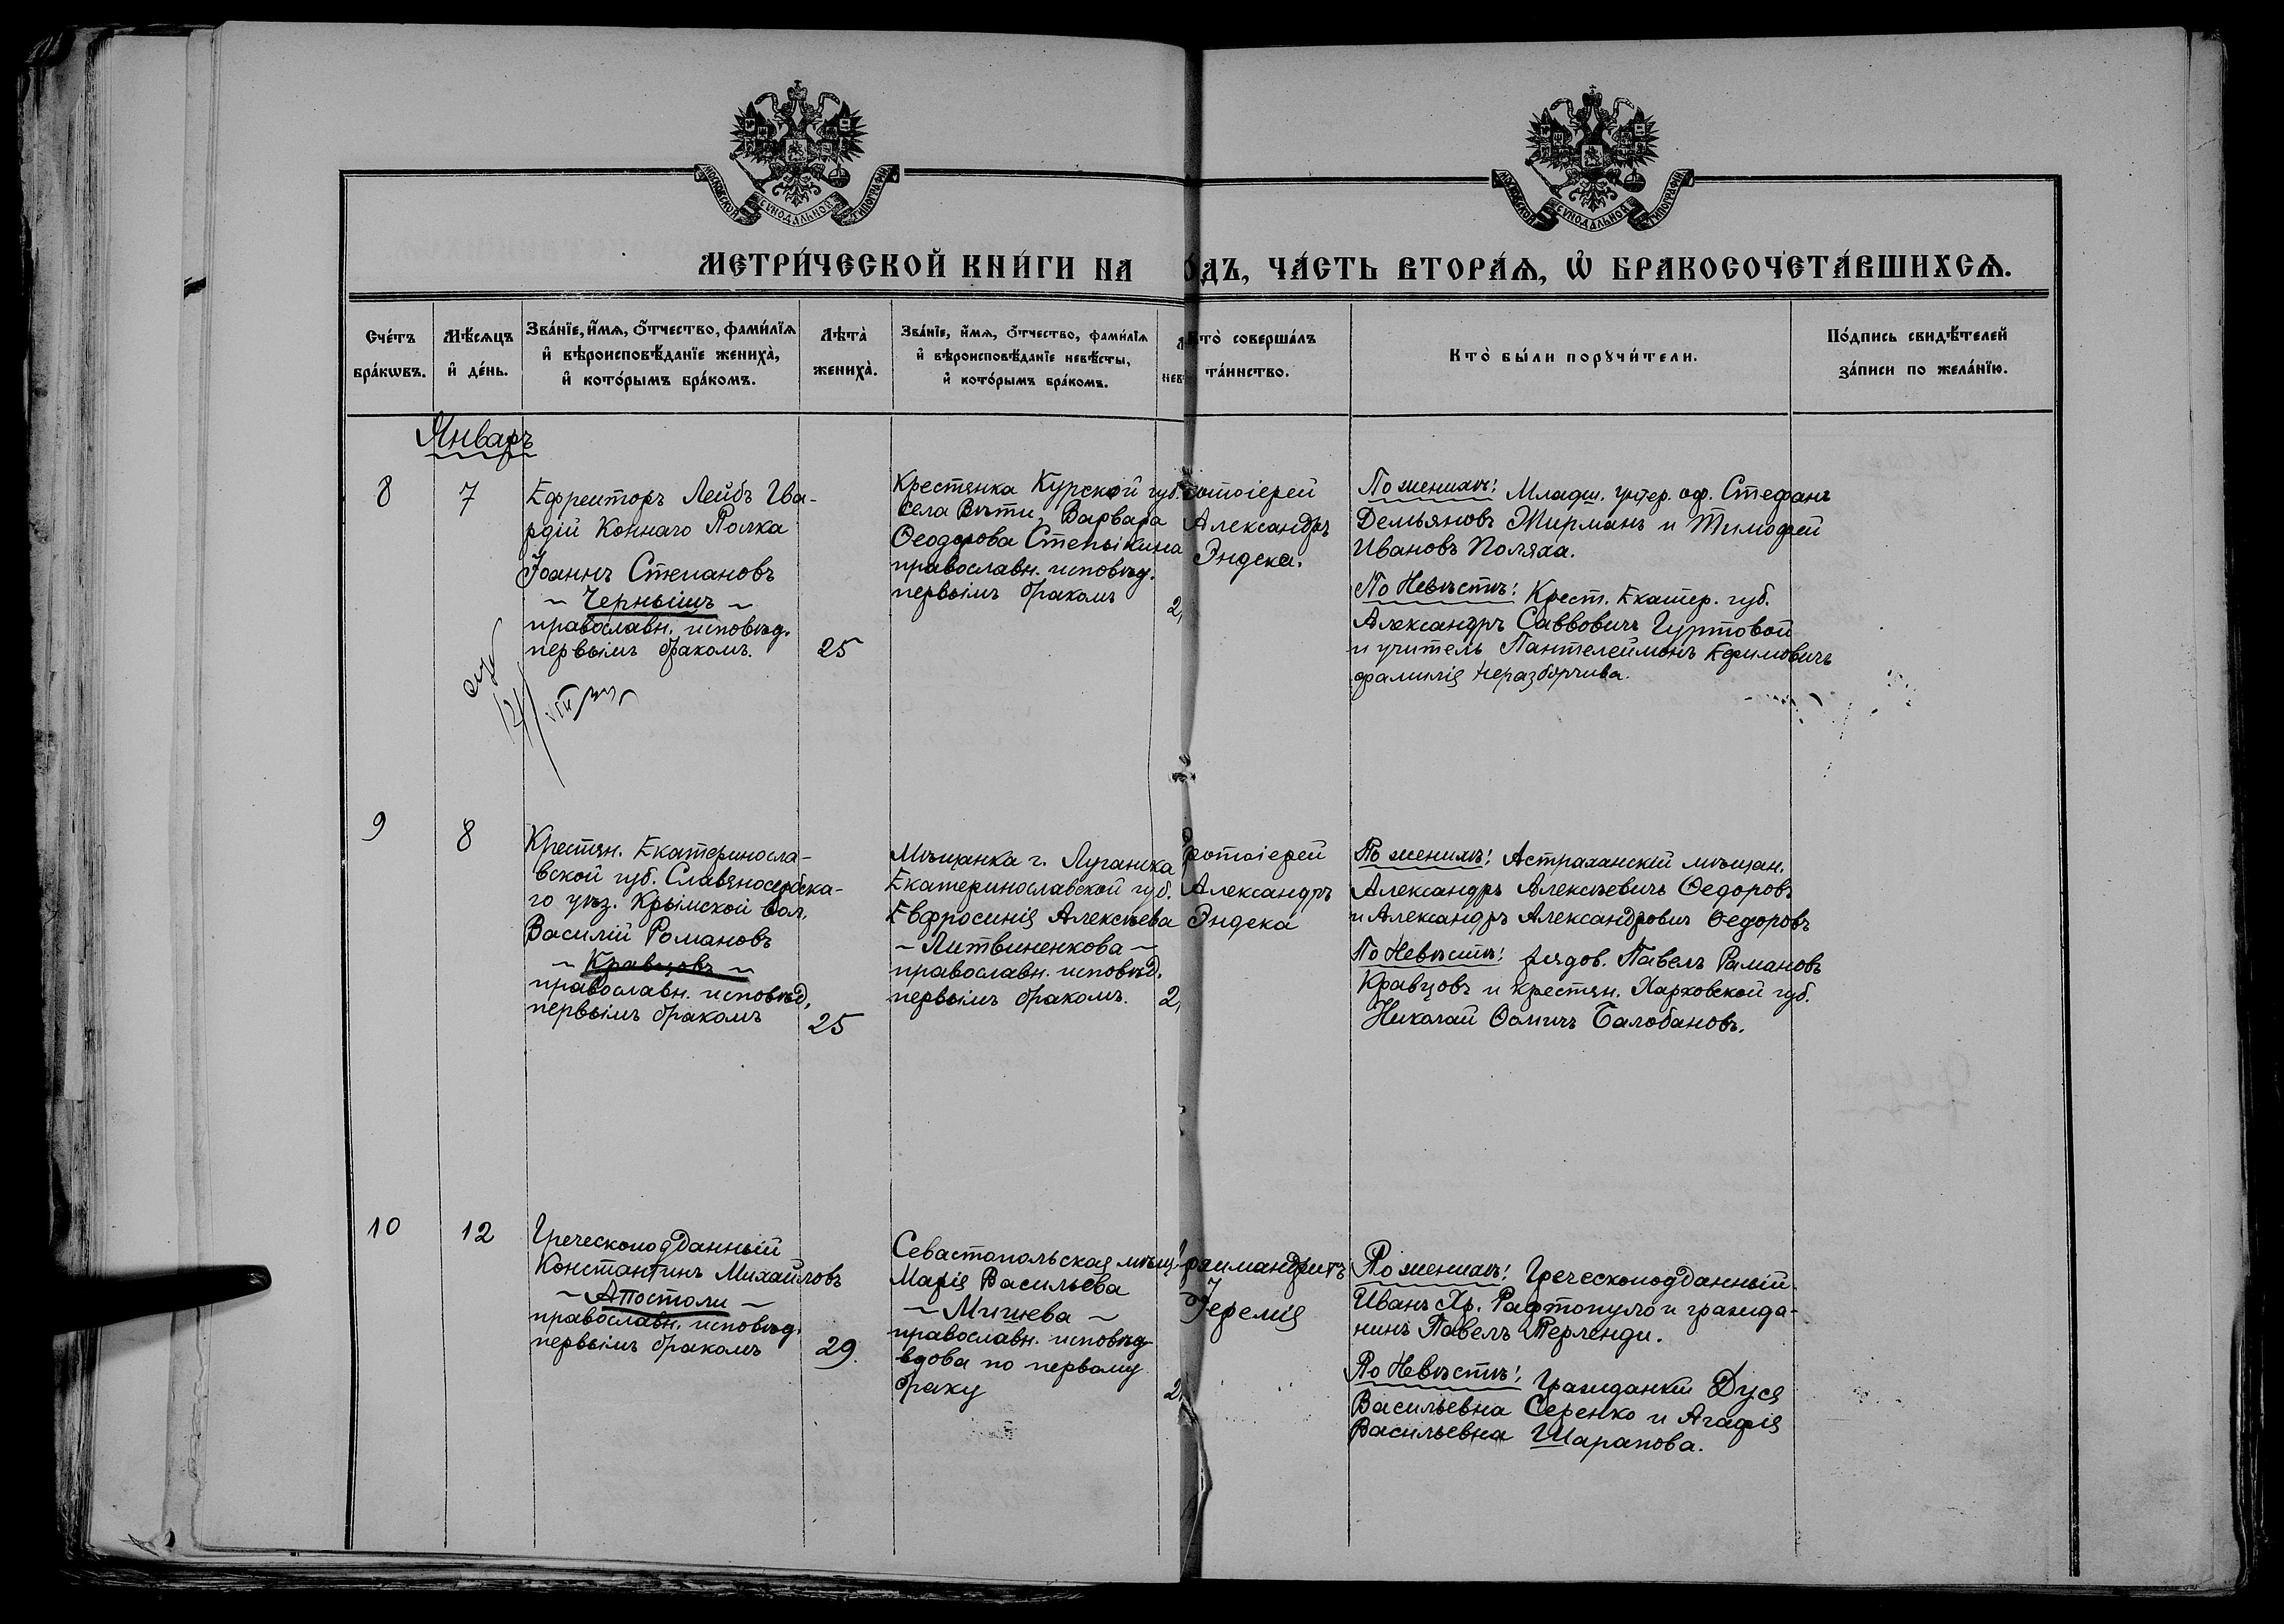 МОСКОВСКОЙ СѴНОДАЛЬНОЙ ТИПОГРАФІИ
МОСКОВСКОЙ СѴНОДАЛЬНОЙ ТИПОГРАФІИ
МЕТРИ́ЧЕСКОЙ КНИ́ГИ НА
ОДЪ, ЧА́СТЬ ВТОРА́Ѧ, Ѽ БРАКОСОЧЕТА́ВШИХСѦ.
Сче́тъ
бра́кѡвъ.
Мѣ́сѧцъ
и҆ де́нь.
Зва́нїе, и҆́мѧ, ѻ҆́тчество, фами́лїѧ
и҆ вѣроисповѣ́данїе жениха̀,
и҆ кото́рымъ бра́комъ.
Лѣта̀
жениха̀.
Зва́нїе, и҆́мѧ, ѻ҆́тчество, фами́лїѧ
и҆ вѣроисповѣ́данїе невѣ́сты,
и҆ кото́рымъ бра́комъ.
Л
нев
Кто̀ соверша́лъ
та́инство.
Кто̀ бы́ли порꙋчи́тели.
По́дпись свидѣ́телей
за́писи по жела́нїю.
Январь
8
7
Ефрейторъ Лейбъ Гва-
рдій Коннаго Полка
Іоаннъ Степановъ
~ Чернышъ ~
православн. исповѣд.
первымъ бракомъ.
25
Крестянка Курской губ.
села Вѣти, Варвара
Ѳеодорова Степыкина
православн. исповѣд.
первымъ бракомъ
2
отоіерей
Александръ
Эндека.
По женихѣ: Младш. унтер. оф. Стефанъ
Демьяновъ Жирманъ и Тимофей
Ивановъ Поляха.
По Невѣстѣ: Крест. Екатер. губ.
Александръ Саввовичъ Гуртовой
и учитель Пантелеймонъ Ефимовичъ
фамилія неразборчива.
9
8
Крестян. Екатериносла-
вской губ. Славяносербска-
го уѣз. Крымской вол.
Василій Романовъ
~ Кравцовъ ~
православн. исповѣд.
первымъ бракомъ
25
Мѣщанка г. Луганска
Екатеринославской губ.
Евфросинія Алексѣева
~ Литвиненкова ~
православн. исповѣд.
первымъ бракомъ.
2
ротоіерей
Александръ
Эндека
По женихѣ: Астраханскій мѣщан.
Александръ Алексѣевичъ Ѳедоровъ
и Александръ Александрович Ѳедоровъ
По Невѣстѣ: рядов. Павелъ Рамановъ
Кравцовъ и крестян. Харковской губ.
Николай Ѳомичъ Балобановъ.
10
12
Греческоподданный
Константинъ Михайловъ
~ Апостоли ~
православн. исповѣд.
первымъ бракомъ
29.
Севастопольская мѣщ.
Марія Васильева
~ Мишева ~
православн. исповѣд
вдова по первому
браку
2
рхимандритъ
Іеремія
По женихѣ: Греческоподданный
Иванъ Хр. Рафтопуло и гражда-
нинъ Павелъ Терленди.
По Невѣстѣ: Гражданки Дуся
Васильевна Серенко и Агафія
Васильевна Шарапова.